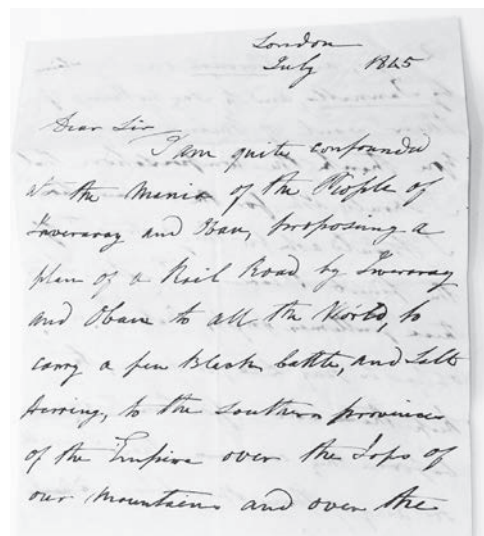 London
July 1845
Dear Sir
I am quite confounded
at the Mania of the People of
Inveraray and Oban, proposing a
plan of a Rail Road by Inveraray
and Oban to all the World, to
carry a few Black Cattle, and Salt
Herring, to the Southern provinces
of the Empire over the Tops of
our Mountains and over the